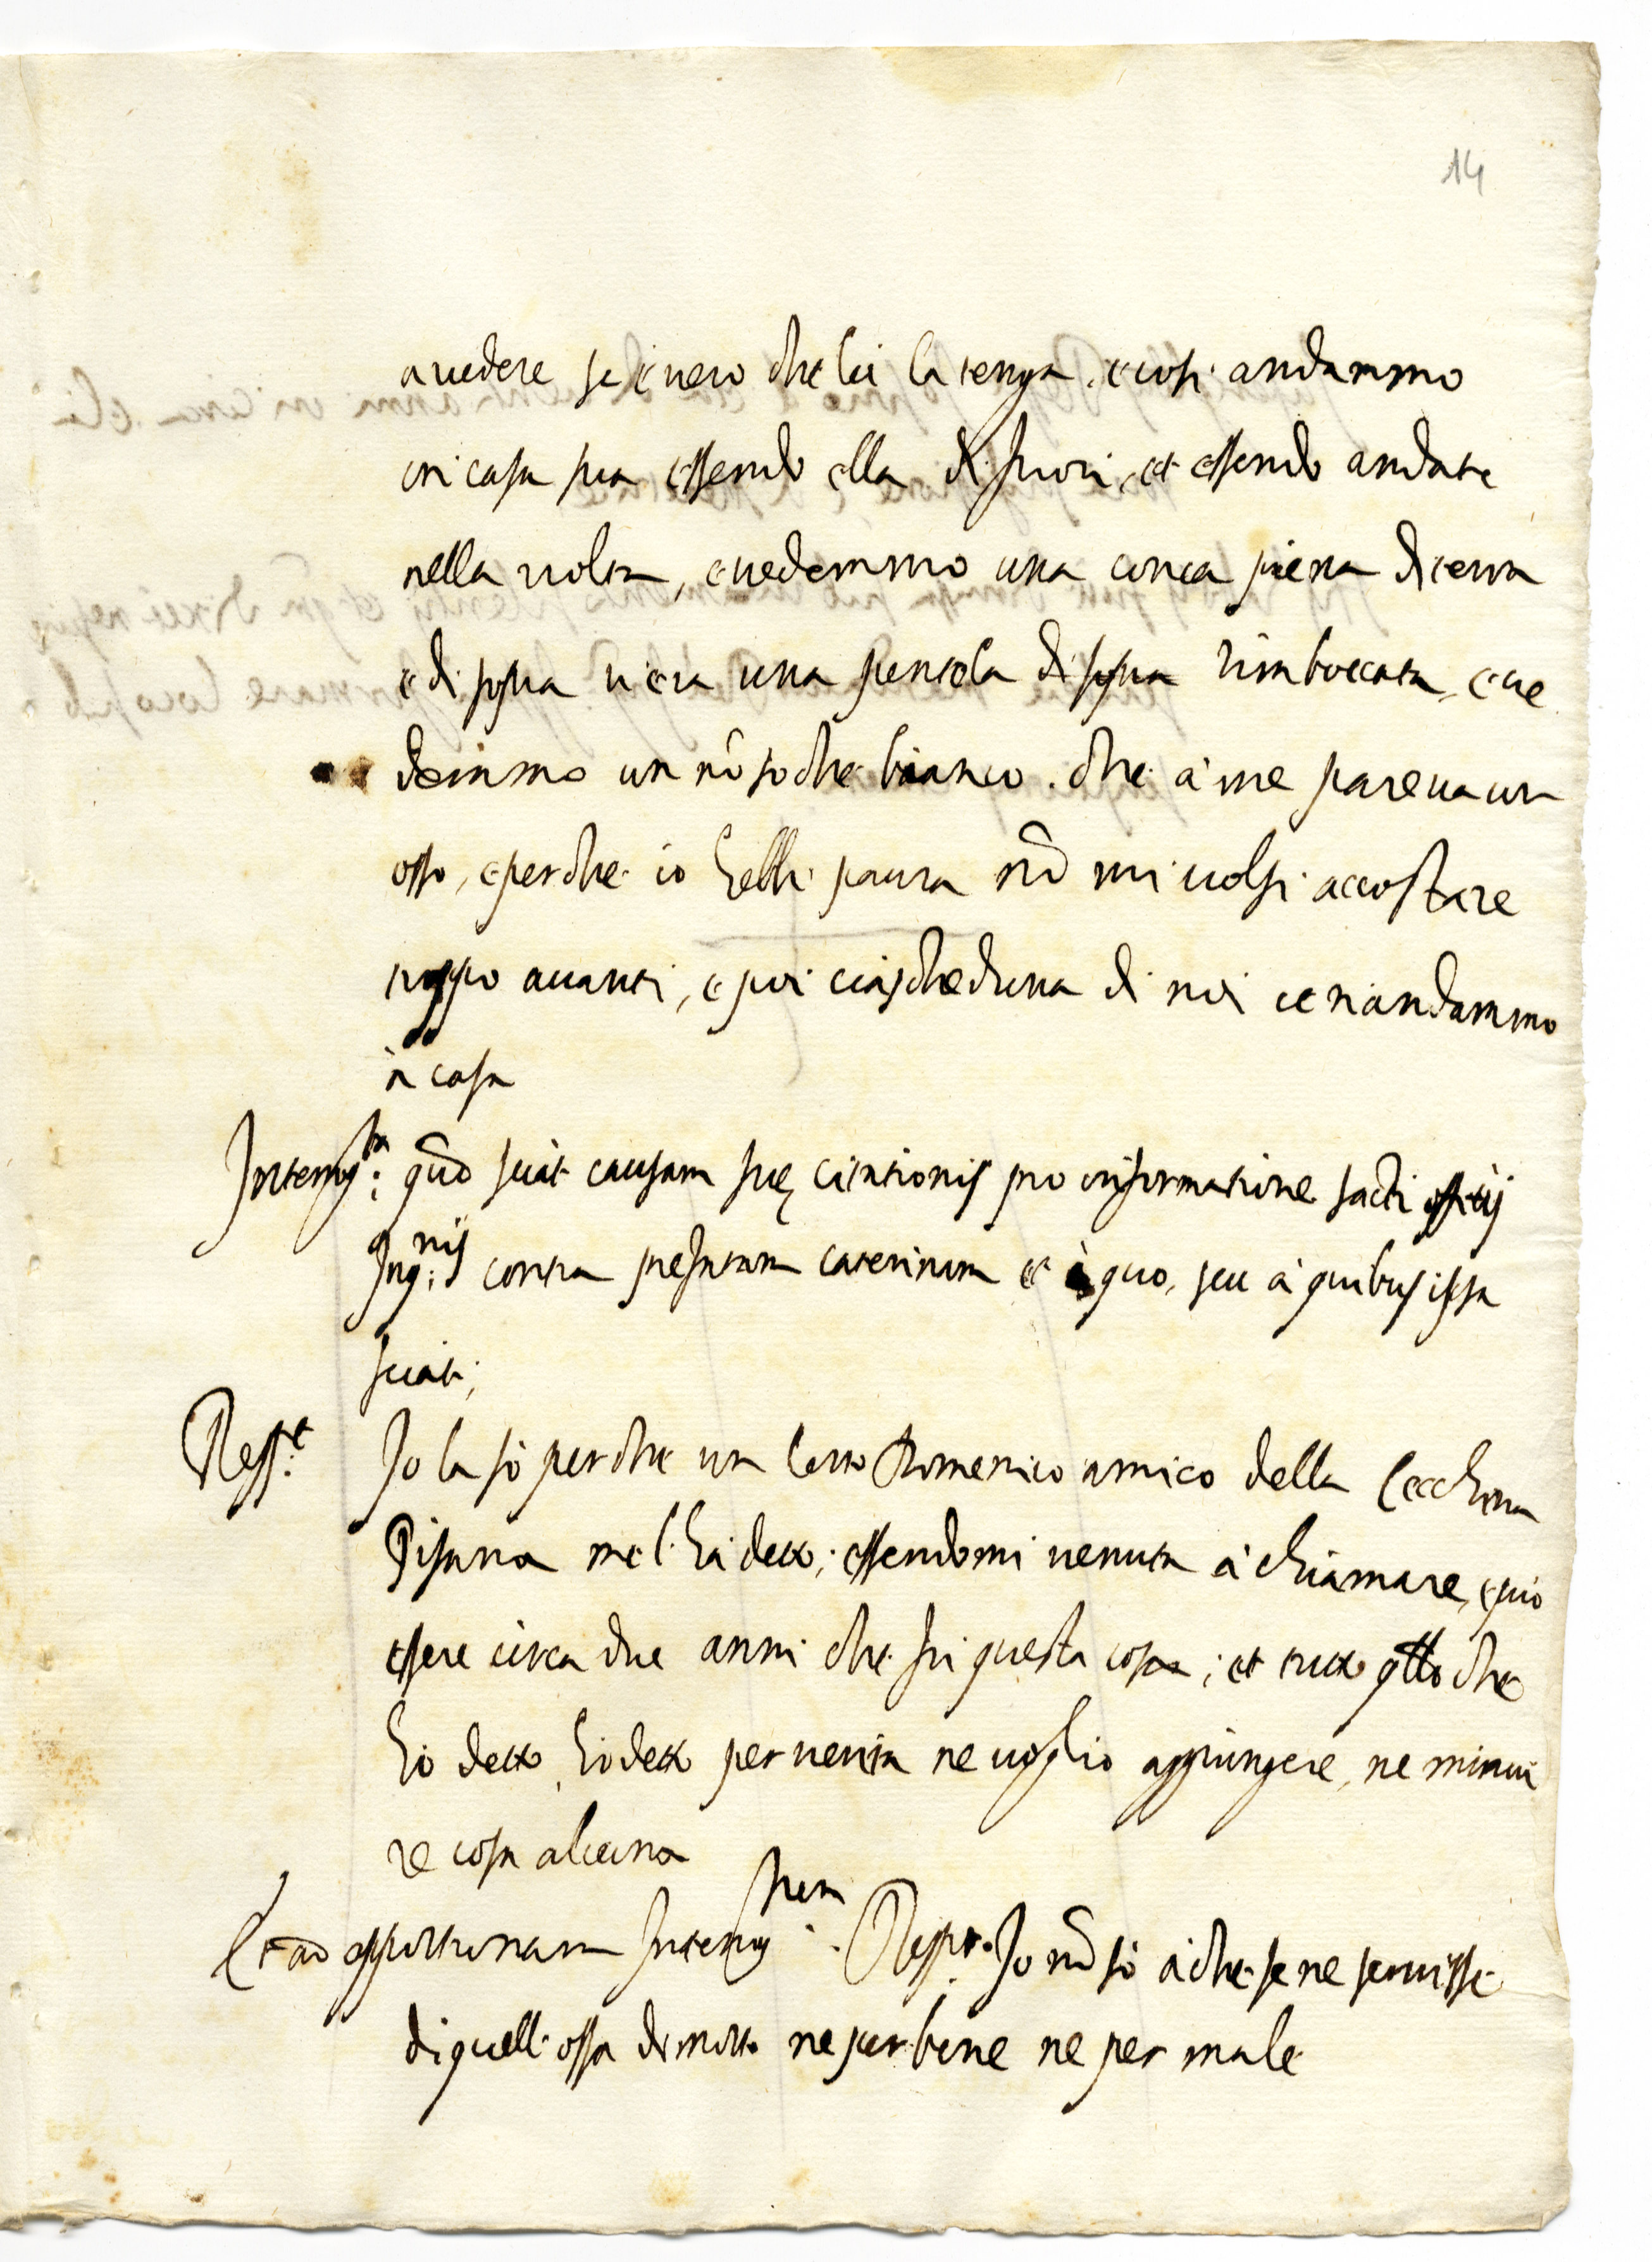 14
a vedere se è vero che lei la tenga, e così andammo
in casa sua essendo ella di fuori, et essendo andate
nella volta, e vedemmo una conca piena di terra
e di sopra v'era una pentola di sopra rimboccata, e ve
demmo un nõ so che bianco. che à me pareva un
osso, e perche io hebbi paura nõ mi volsi accostare
troppo avanti, e poi ciascheduna di noi ce n'andammo
à casa
Interrog:ta quõ sciat causam suę citationis pro informatione sacti officij
Inq:nis contra prefatam caterinam et à quo, seu à quibus ipsa
sciat;
Resp:t Io la sò perche un certo Domenico amico della Cecchina
Pisana me l'hà detto; essendomi venuta à chiamare, e può
essere circa due anni che fù questa cosa; et tutto qllo che
hò detto, hò detto per verità ne voglio aggiungere, ne minui
re cosa alcuna
Et ad opportunam Interrog:nem. Resp:t Io nõ sò à che se ne servisse
di quell'ossa di morto ne per bene ne per male